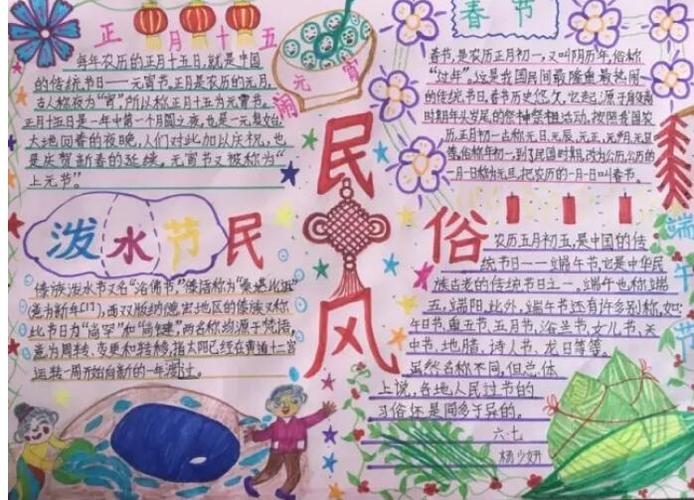 正月十五
每年农历的正月十五日,就是中国
的传统节日——元宵节。正月是农历的元月,
古人称夜为“宵”,所以称正月十五为元宵节。
正月十五日是一年中第一个月圆之夜,也是一元复始,
大地回春的夜晚,人们对此加以庆祝,也
是庆贺新春的延续。元宵节又被称为“
上元节”。
闹元宵
春节
春节,是农历正月初一,又叫阴历年,俗称
“过年”。这是我国民间最隆重最热闹
的传统节日。春节历史悠久,它起源于殷商
时期年头岁尾的祭神祭祖活动。按照我国农
历,正月初一古称元日、元辰、元正、元朔、元旦
等,俗称年初一,到了民国时期,改为公历,公历的
一月一日称为元旦,把农历的一月一日叫春节。
民
风
民
俗
泼水节
傣族泼水节又名“浴佛节”,傣语称为“桑堪比迈”
意为新年
,西双版纳德宏地区的傣族又称
此节日为“尚罕”和“尚键”,两名称均源于梵语,
意为周转、变更和转移,指太阳已经在黄道十二宫
运转一周开始向新的一年过
端午节
农历五月初五,是中国的传
统节日——端午节,它是中华民
族古老的传统节日之一。端午也称端
五,端阳。此外,端午节还有许多别称,如:
午日节、重五节、五月节、浴兰节、女儿节、天
中节、地腊、诗人节、龙日等等。
虽然名称不同,但总体
上说,各地人民过节的
习俗还是同多于异的。
六·七
杨少妍